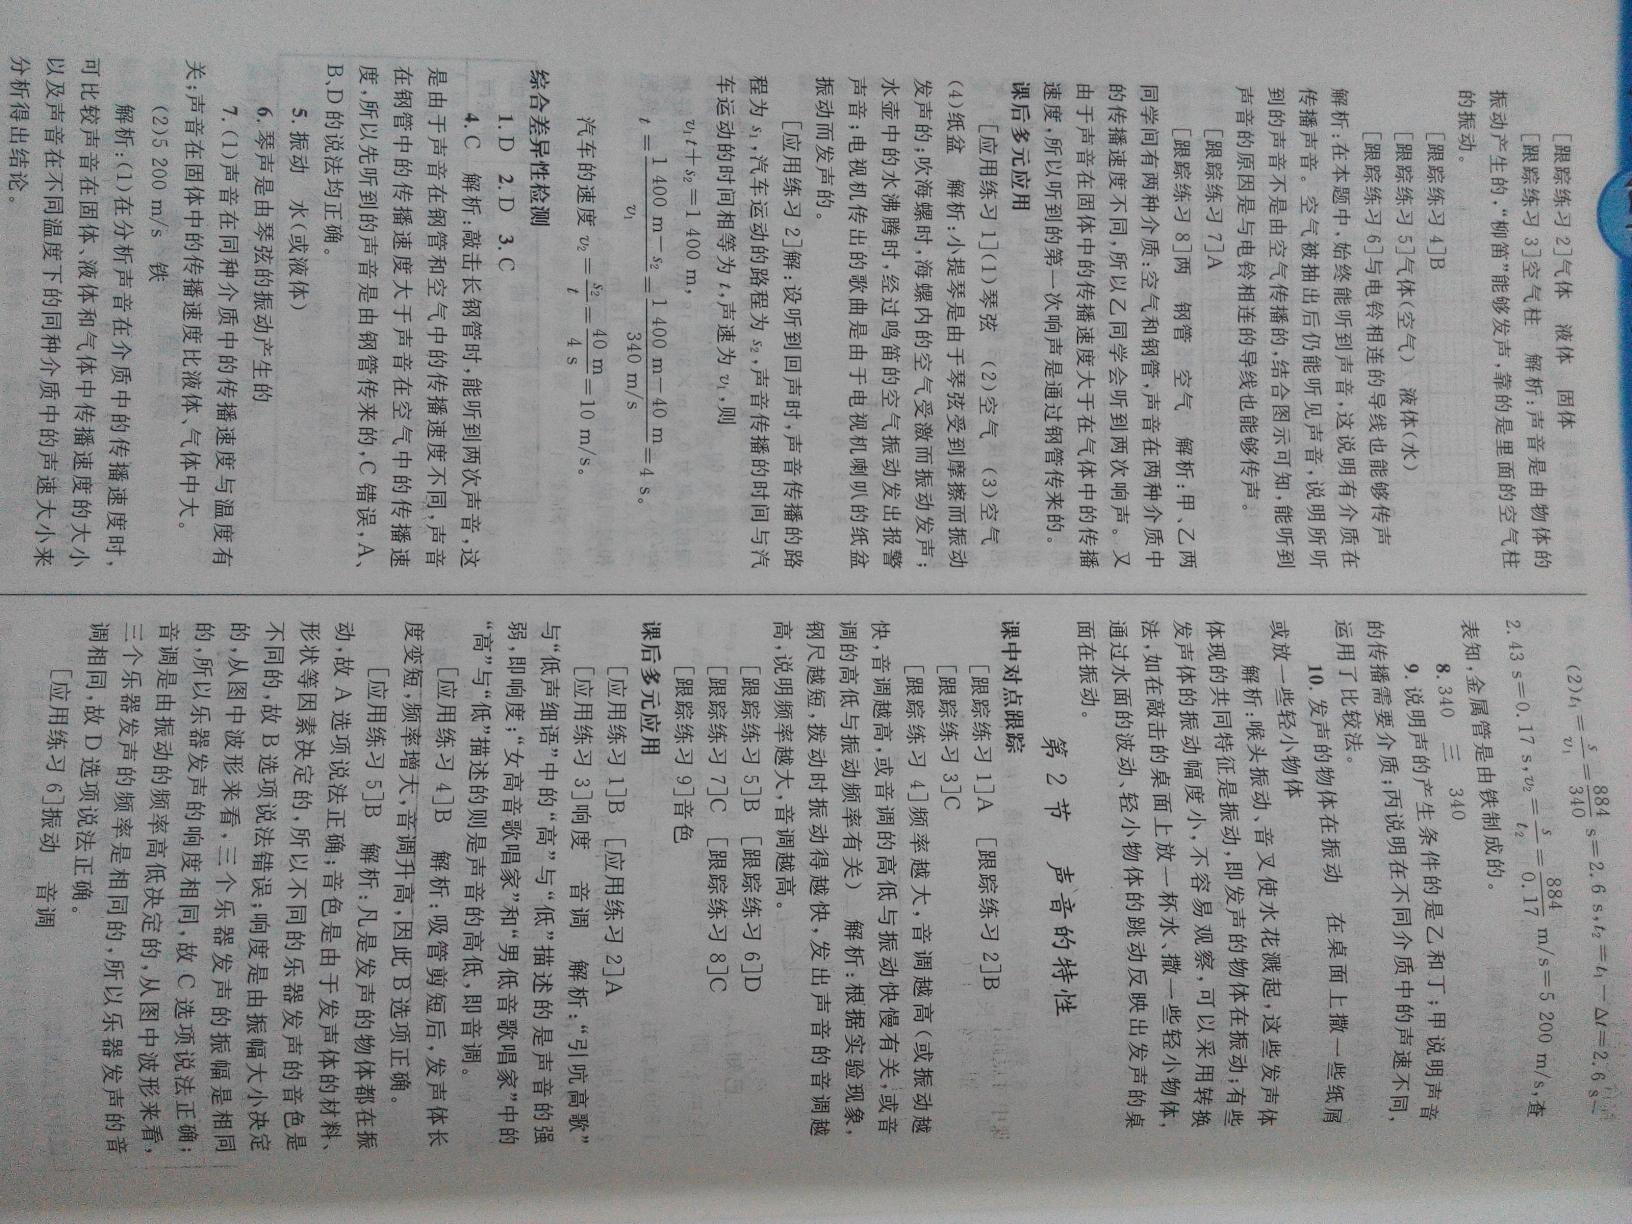 [跟踪练习 2]气体　液体　固体
[跟踪练习 3]空气柱　解析:声音是由物体的
振动产生的,“柳笛”能够发声,靠的是里面的空气柱
的振动。
[跟踪练习 4]B
[跟踪练习 5]气体(空气)　液体(水)
[跟踪练习 6]与电铃相连的导线也能够传声
解析:在本题中,始终能听到声音,这说明有介质在
传播声音。空气被抽出后仍能听见声音,说明所听
到的声音不是由空气传播的,结合图示可知,能听到
声音的原因是与电铃相连的导线也能够传声。
[跟踪练习 7]A
[跟踪练习 8]两　钢管　空气　解析:甲、乙两
同学间有两种介质:空气和钢管,声音在两种介质中
的传播速度不同,所以乙同学会听到两次响声。又
由于声音在固体中的传播速度大于在气体中的传播
速度,所以听到的第一次响声是通过钢管传来的。
课后多元应用
[应用练习 1](1)琴弦　(2)空气　(3)空气
(4)纸盆　解析:小提琴是由于琴弦受到摩擦而振动
发声的;吹海螺时,海螺内的空气受激而振动发声;
水壶中的水沸腾时,经过鸣笛的空气振动发出报警
声音;电视机传出的歌曲是由于电视机喇叭的纸盆
振动而发声的。
[应用练习 2]解:设听到回声时,声音传播的路
程为 s₁,汽车运动的路程为 s₂,声音传播的时间与汽
车运动的时间相等为 t,声速为 v₁,则
v₁t+s₂=1 400 m,
t=(1 400 m−s₂)/v₁=(1 400 m−40 m)/(340 m/s)=4 s。
汽车的速度 v₂=s₂/t=40 m/4 s=10 m/s。
综合差异性检测
1. D　2. D　3. C
4. C　解析:敲击长钢管时,能听到两次声音,这
是由于声音在钢管和空气中的传播速度不同,声音
在钢管中的传播速度大于声音在空气中的传播速
度,所以先听到的声音是由钢管传来的,C 错误,A、
B、D 的说法均正确。
5. 振动　水(或液体)
6. 琴声是由琴弦的振动产生的
7. (1)声音在同种介质中的传播速度与温度有
关;声音在固体中的传播速度比液体、气体中大。
(2)5 200 m/s　铁
解析:(1)在分析声音在介质中的传播速度时,
可比较声音在固体、液体和气体中传播速度的大小
以及声音在不同温度下的同种介质中的声速大小来
分析得出结论。
(2)t₁=s/v₁=884/340 s=2.6 s,t₂=t₁−Δt=2.6 s−
2.43 s=0.17 s,v₂=s/t₂=884/0.17 m/s=5 200 m/s,查
表知,金属管是由铁制成的。
8. 340　三　340
9. 说明声的产生条件的是乙和丁;甲说明声音
的传播需要介质;丙说明在不同介质中的声速不同,
运用了比较法。
10. 发声的物体在振动　在桌面上撒一些纸屑
或放一些轻小物体
解析:喉头振动、音叉使水花溅起,这些发声体
体现的共同特征是振动,即发声的物体在振动;有些
发声体的振动幅度小,不容易观察,可以采用转换
法,如在敲击的桌面上放一杯水、撒一些轻小物体,
通过水面的波动、轻小物体的跳动反映出发声的桌
面在振动。
第 2 节　声音的特性
课中对点跟踪
[跟踪练习 1]A　[跟踪练习 2]B
[跟踪练习 3]C
[跟踪练习 4]频率越大,音调越高(或振动越
快,音调越高,或音调的高低与振动快慢有关,或音
调的高低与振动频率有关)　解析:根据实验现象,
钢尺越短,拨动时振动得越快,发出声音的音调越
高,说明频率越大,音调越高。
[跟踪练习 5]B　[跟踪练习 6]D
[跟踪练习 7]C　[跟踪练习 8]C
[跟踪练习 9]音色
课后多元应用
[应用练习 1]B　[应用练习 2]A
[应用练习 3]响度　音调　解析:“引吭高歌”
与“低声细语”中的“高”与“低”描述的是声音的强
弱,即响度;“女高音歌唱家”和“男低音歌唱家”中的
“高”与“低”描述的则是声音的高低,即音调。
[应用练习 4]B　解析:吸管剪短后,发声体长
度变短,频率增大,音调升高,因此 B 选项正确。
[应用练习 5]B　解析:凡是发声的物体都在振
动,故 A 选项说法正确;音色是由于发声体的材料、
形状等因素决定的,所以不同的乐器发声的音色是
不同的,故 B 选项说法错误;响度是由振幅大小决定
的,从图中波形来看,三个乐器发声的振幅是相同
的,所以乐器发声的响度相同,故 C 选项说法正确;
音调是由振动的频率高低决定的,从图中波形来看,
三个乐器发声的频率是相同的,所以乐器发声的音
调相同,故 D 选项说法正确。
[应用练习 6]振动　音调